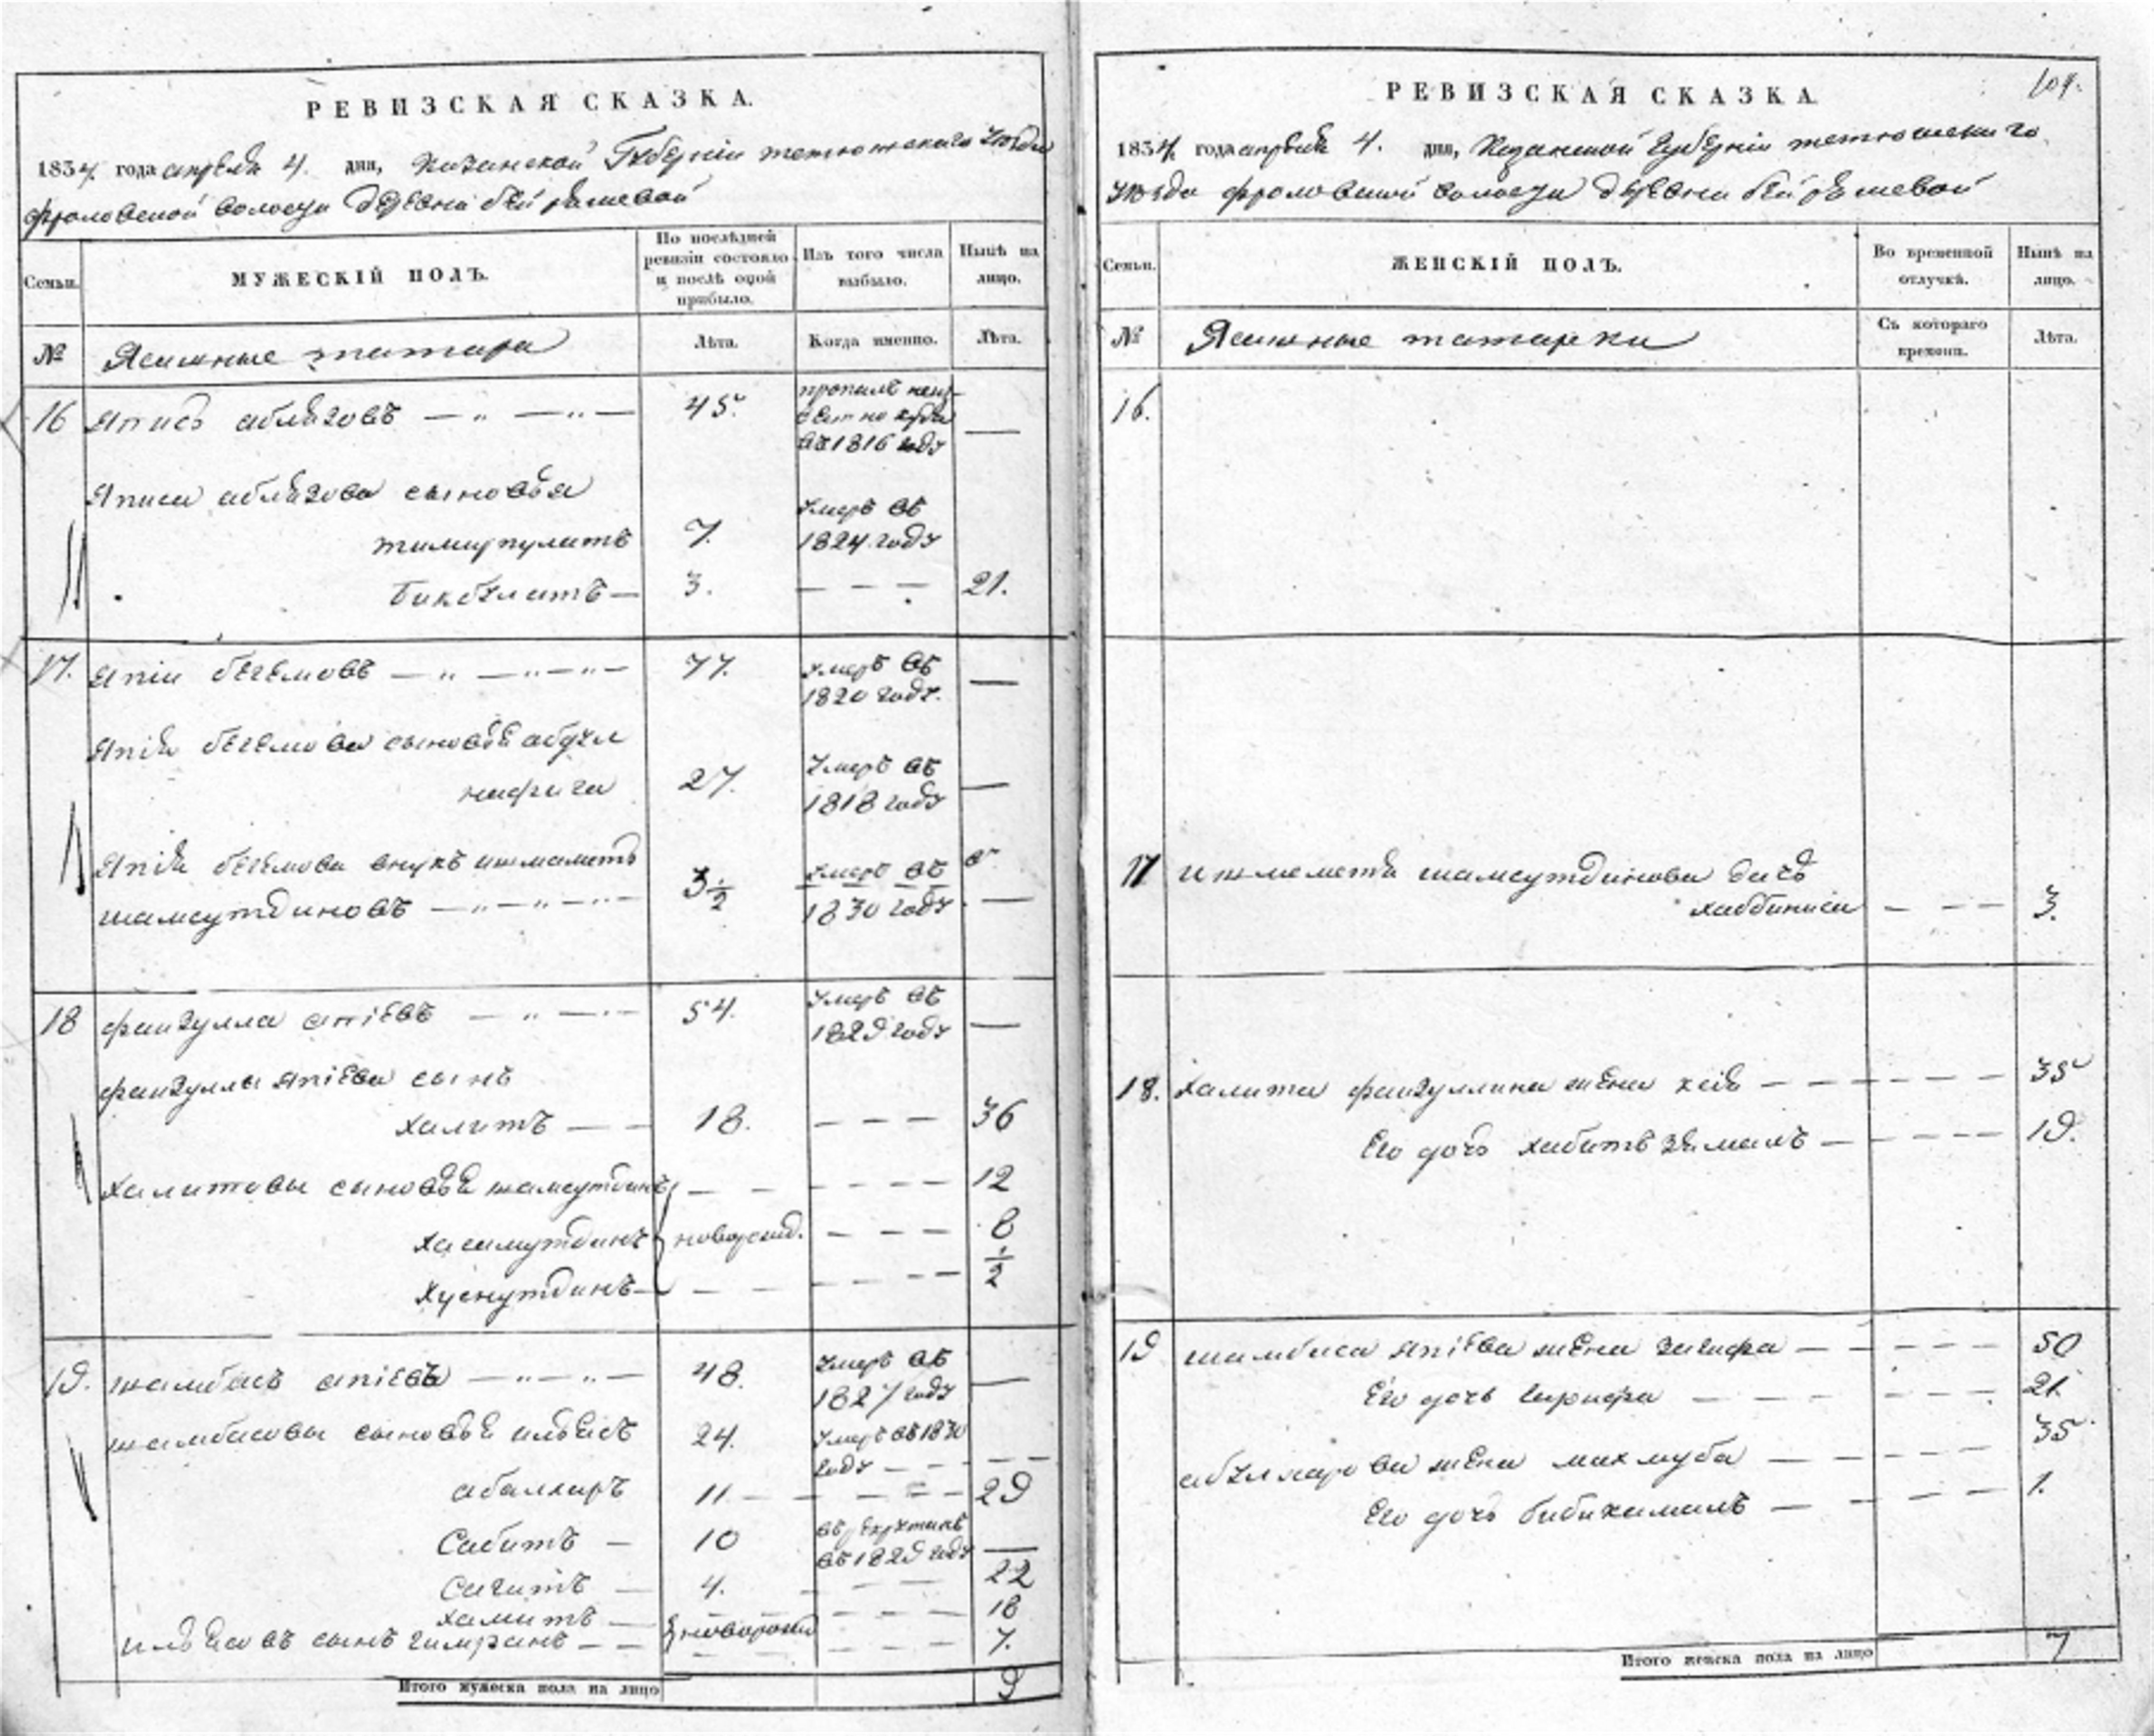 РЕВИЗСКАЯ СКАЗКА.
1834 года апреля 4. дня, Казанской Губерніи тетюшскаго уезда
фроловской волости деревни бей
Семьи.
МУЖЕСКІЙ ПОЛЪ.
По послѣдней ревизіи состояло и послѣ оной прибыло.
Изъ того числа выбыло.
Нынѣ на лицо.
№
Ясашные татара
Лѣта.
Когда именно.
Лѣта.
16 Яписъ аблязовъ — „ — „ — 45. пропалъ неиз-
вестно куда
въ 1816 году —
Яписа аблязова сыновья
тимирпулатъ 7. умеръ въ
1824 году
Бикбулатъ — 3. — — — 21.
17. Япіи бегемовъ — „ — „ — „ — 77. умеръ въ
1820 году. —
Япія бегемова сыновья абдул
нафига 27. умеръ въ
1818 году —
Япія бегемова внукъ ишмаметъ
шамсутдиновъ — „ — „ — „ — 3½ умеръ въ
1830 году —
18 файзулла апіевъ — „ — „ — 54. умеръ въ
1829 году —
файзуллы япіева сынъ
халитъ — — 18. — — — 36
халитовы сыновья шамсутдинъ — — — — — 12
хасамутдинъ новорожд. — — — 8
хуснутдинъ — — — — — ½
19. шамбасъ апіевъ — „ — „ — 48. умеръ въ
1827 году —
шамбасовы сыновья ильясъ 24. умеръ въ 1830
году — — —
абалхаръ 11 — — — — 29
Сабитъ — 10 въ рекрутахъ
въ 1829 году —
Сагитъ — 4. — — — 22
хамитъ — новорожд — — — 18
ильясовъ сынъ гимранъ — — — — — 7.
Итого мужеска пола на лицо 9
РЕВИЗСКАЯ СКАЗКА
104.
1834 года апреля 4. дня, Казанской Губерніи тетюшскаго
уезда фроловской волости деревни бей
Семьи.
ЖЕНСКІЙ ПОЛЪ.
Во временной отлучкѣ.
Нынѣ на лицо.
№
Ясашные татарки
Съ котораго времени.
Лѣта.
16.
17 ишмаметя шамсутдинова дочь
хаббиниса — — — 3.
18. халита файзуллина жена — — — — — 35
Его дочь — — — — 19.
19 шамбаса япіева жена загифа — — — — 50
Его дочь — — — — 21.
жена махмуба — — — — 35.
Его дочь бибикамалъ — — — — 1.
Итого женска пола на лицо 7